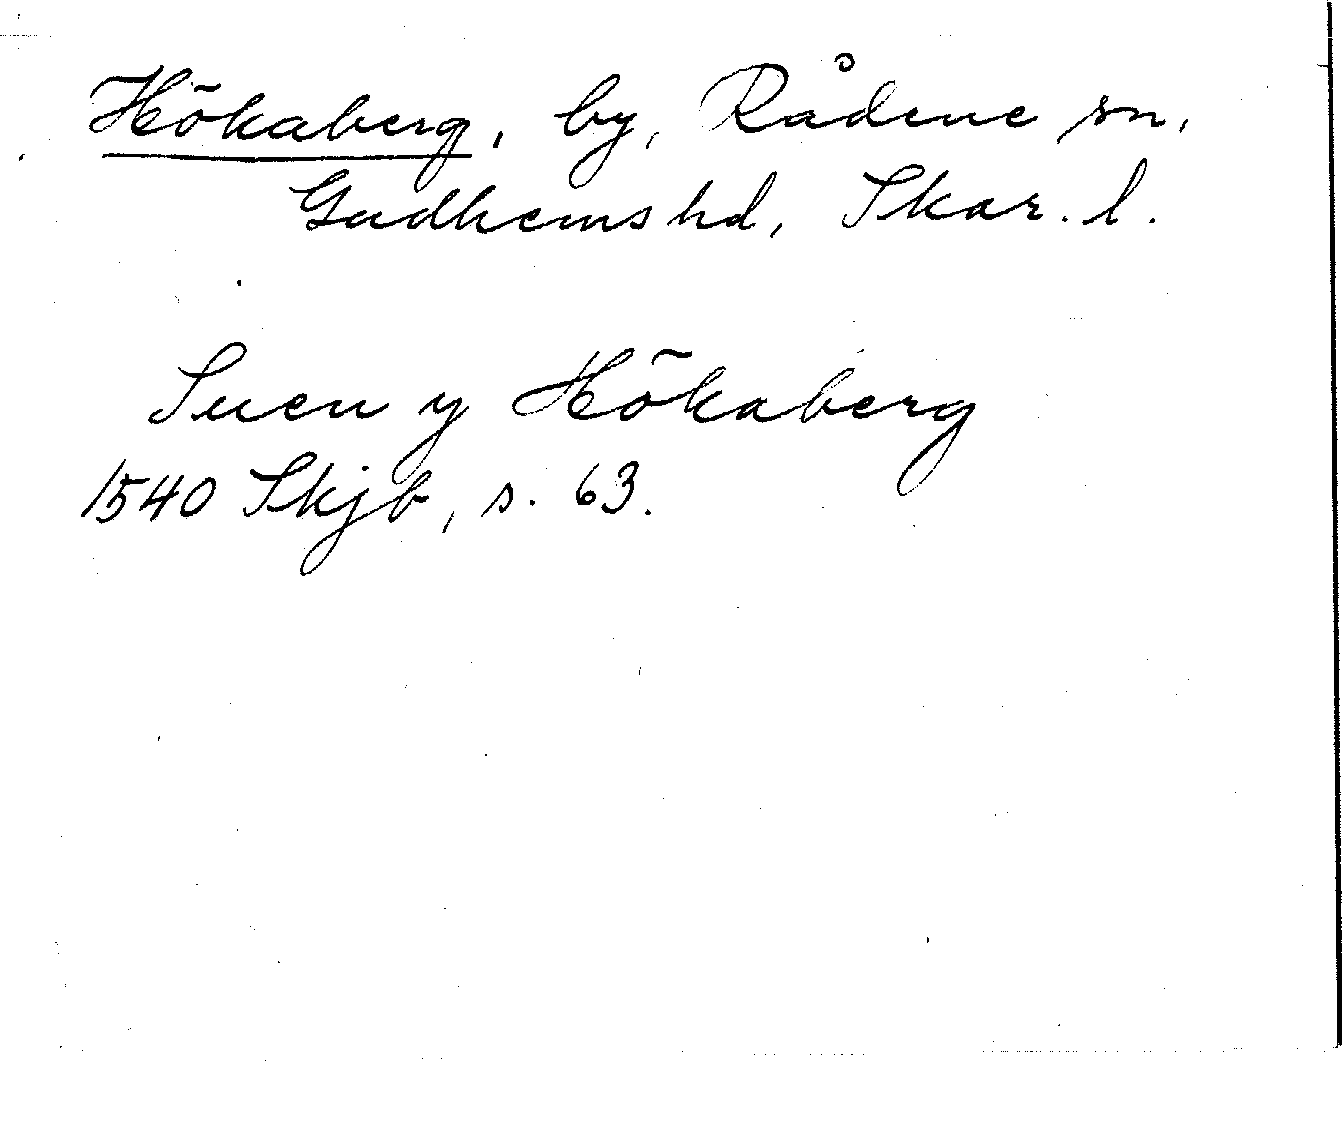 Hökaberg, by, Rådene sn,
Gudhems hd, Skar. l.
Suen y Hökaberg
1540 Skjb, s. 63.